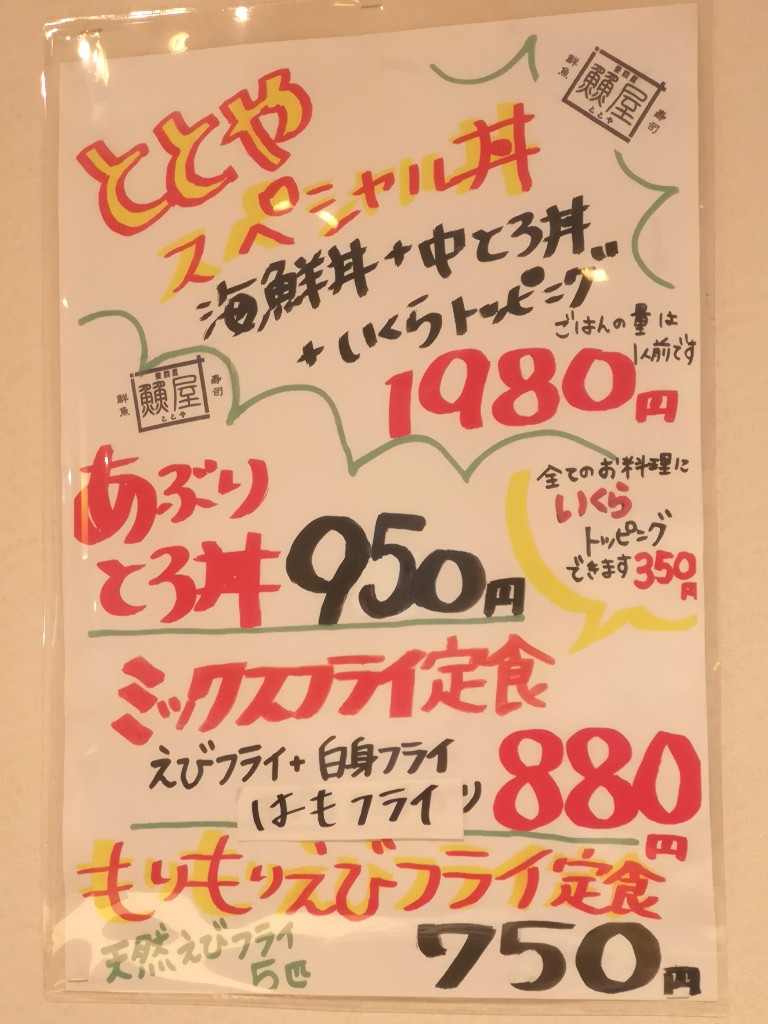 魚屋
鮮魚
寿司
ととや
ととや
スペシャル丼
海鮮丼+中とろ丼
+いくらトッピング
ごはんの量は
1人前です
1980円
鮮魚
屋
寿司
ととや
あぶり
とろ丼 950円
全てのお料理に
いくら
トッピング
できます350円
ミックスフライ定食
えびフライ+白身フライ
はもフライ
880円
もりもりえびフライ定食
天然えびフライ
5匹
750円